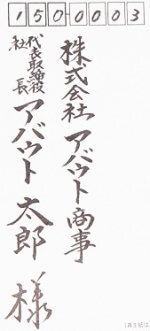 150-0003
株式会社 アバウト商事
代表取締役
社長
アバウト 太郎 様